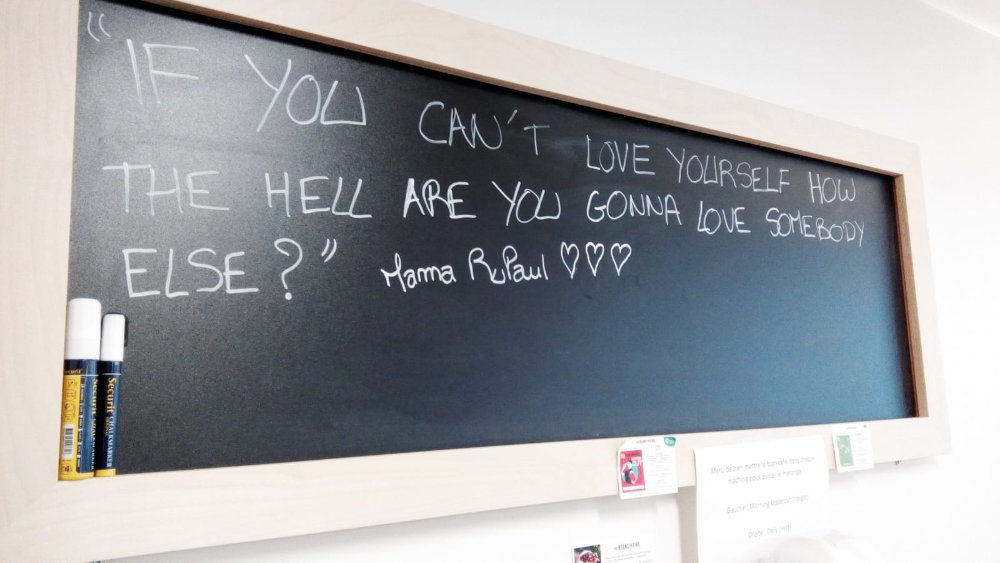 "IF YOU CAN'T LOVE YOURSELF HOW
THE HELL ARE YOU GONNA LOVE SOMEBODY
ELSE?" Mama RuPaul ♡♡♡
Securit CHALKMARKER
Securit
Merci de bien mettre le bon café dans chaque
machine pour éviter le mélange
Gauche : Morning Uppercut (rouge)
Droite : Dois (vert)